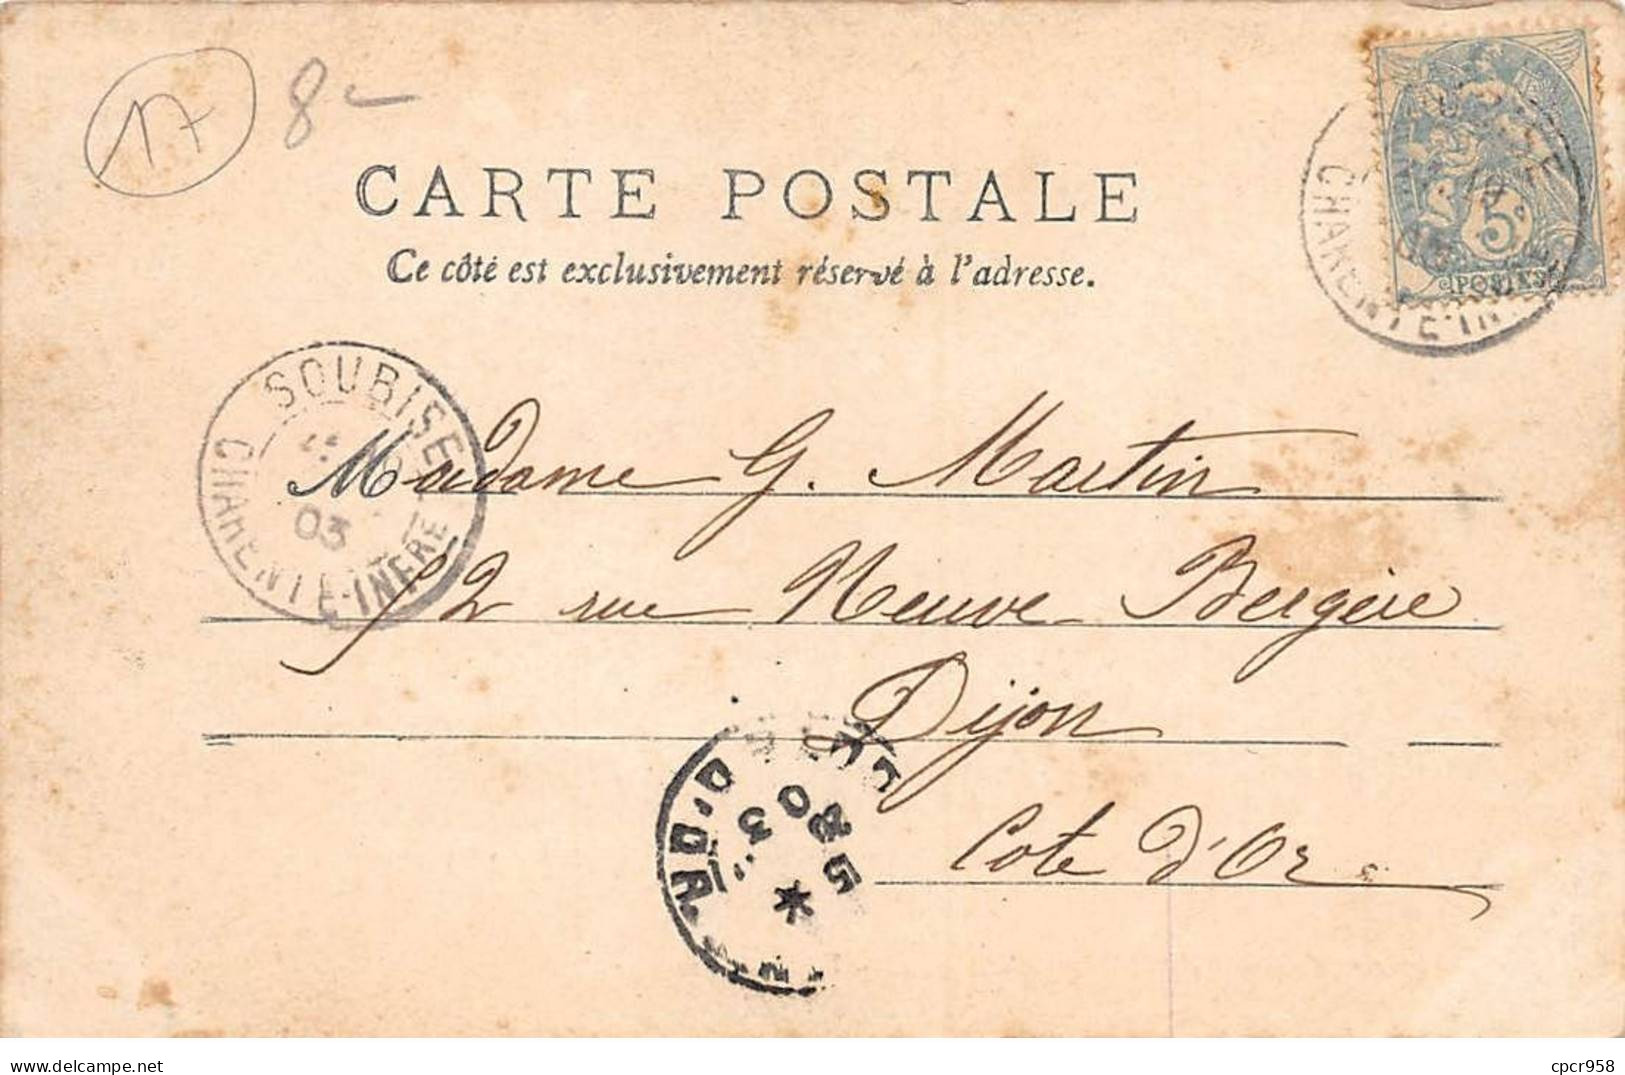 17
8-
CARTE POSTALE
Ce côté est exclusivement réservé à l'adresse.
CHARENTE-IN
5c
POSTES
SOUBISE
03
CHARENTE-INFRE
Madame G. Martin
12 rue Neuve-Bergère
Dijon
Cote d'Or
D'OR
cpcr958